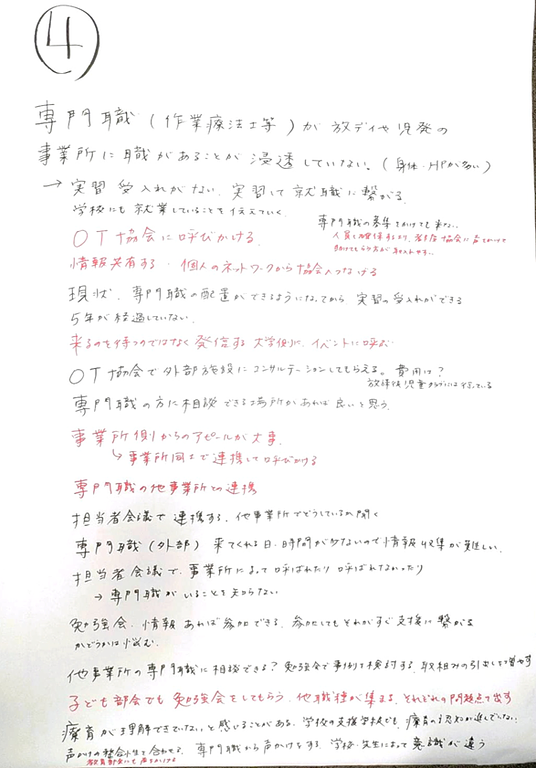 ④
専門職(作業療法士等)が放デイや児発の
事業所に職があることが浸透していない。(身体・HPが多い)
→ 実習受入れがない、実習して就職に繋がる
学校にも就業していることを伝えていく
専門職の募集をかけても来ない
OT協会に呼びかける
情報共有する・個人のネットワークから協会へつなげる
現状、専門職の配置ができるようになってから 実習の受入れができる
5年が経過していない
来るのを待つのではなく発信する 大学側に、イベントに呼ぶ
OT協会で外部施設にコンサルテーションしてもらえる。費用は?
放課後児童クラブには行っている
専門職の方に相談できる場所があれば良いと思う
事業所側からのアピールが大事
↳事業所同士で連携して呼びかける
専門職の他事業所との連携
担当者会議で連携する、他事業所でどうしているか聞く
専門職(外部)来てくれる日、時間が少ないので情報収集が難しい
担当者会議で、事業所によって呼ばれたり呼ばれてなかったり
→ 専門職がいることを知らない
勉強会、情報あれば参加できる、参加してもそれがすぐ支援に繋がる
かどうかは悩む
他事業所の専門職に相談できる?勉強会で事例を検討する、取組みの引出しを増やす
子ども部会でも勉強会をしてもらう、他職種が集まる、それぞれの問題点を出す
療育が理解できていないと感じることがある、学校の支援学校でも、療育の認知が進んでいない
専門職から声かけをする、学校・先生によって意識が違う
教育部会にも声をかける